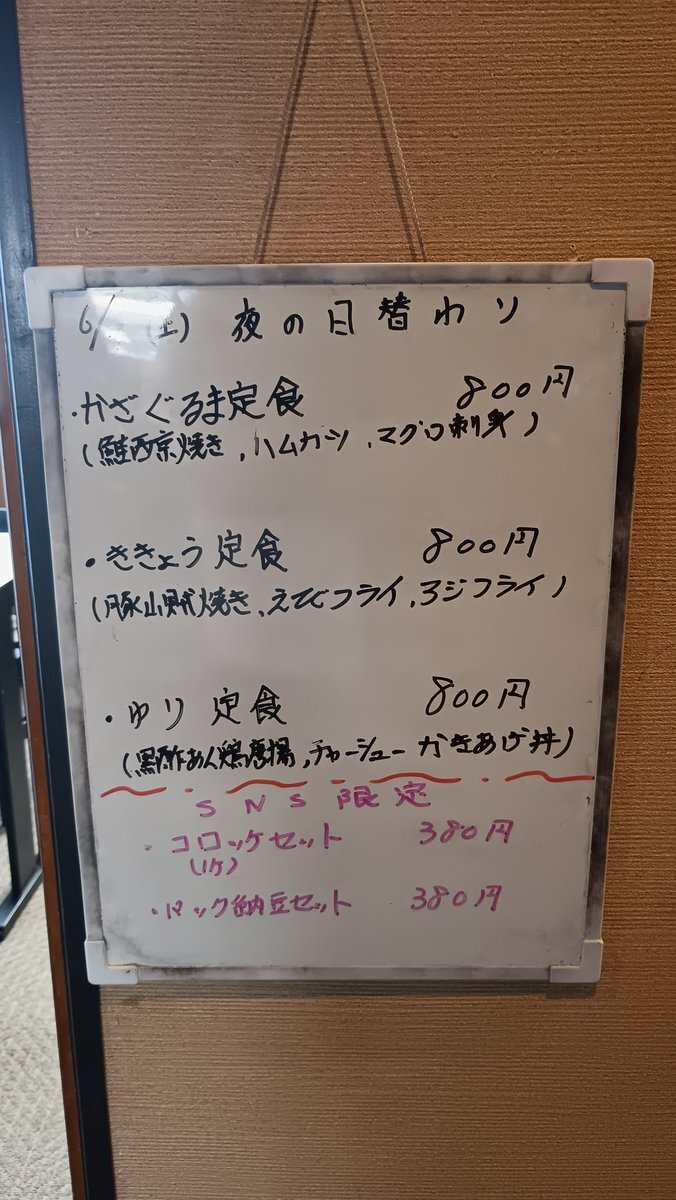 6/ (土) 夜の日替わり
・かざぐるま定食 800円
(鮭西京焼き、ハムカツ、マグロ刺身)
・ききょう定食 800円
(豚山賊焼き、えびフライ、アジフライ)
・ゆり定食 800円
(黒酢あん鶏唐揚、チャーシューかきあげ丼)
SNS限定
・コロッケセット 380円
(1ヶ)
・パック納豆セット 380円